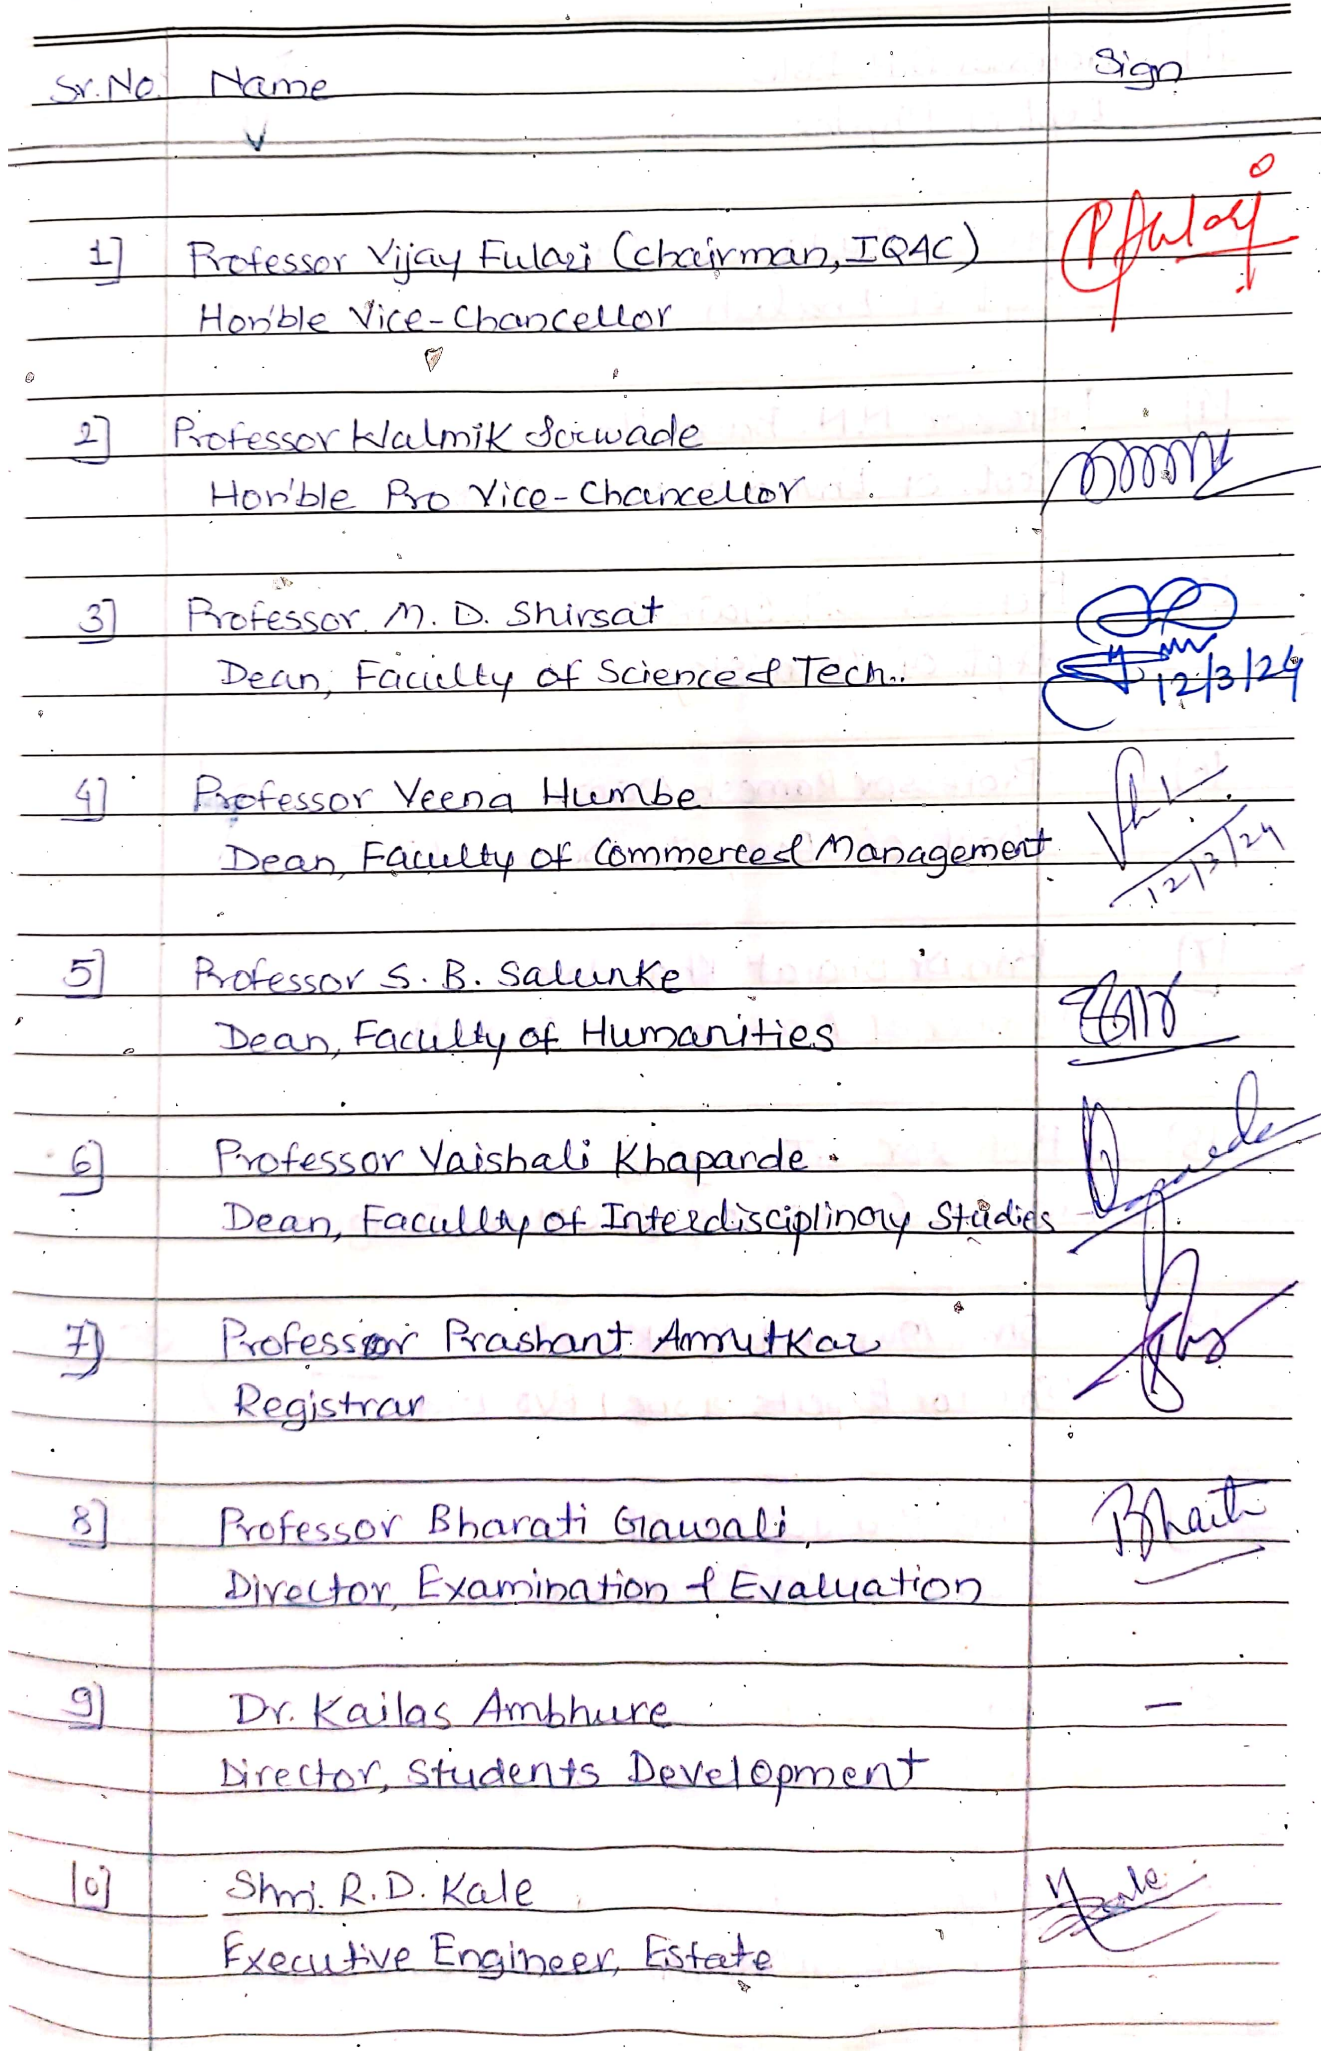 Sr.No. Name Sign
1] Professor Vijay Fulari (Chairman, IQAC)
Hon'ble Vice-Chancellor
2] Professor Walmik Sarwade
Hon'ble Pro Vice-Chancellor
3] Professor M. D. Shirsat
Dean, Faculty of Science & Tech.
12/3/24
4] Professor Veena Humbe
Dean, Faculty of Commerce & Management
12/3/24
5] Professor S. B. Salunke
Dean, Faculty of Humanities
6] Professor Vaishali Khaparde
Dean, Faculty of Interdisciplinary Studies
7] Professor Prashant Amrutkar
Registrar
8] Professor Bharati Gawali, Bharati
Director, Examination & Evaluation
9] Dr. Kailas Ambhure —
Director, Students Development
10] Shri. R.D. Kale
Executive Engineer, Estate